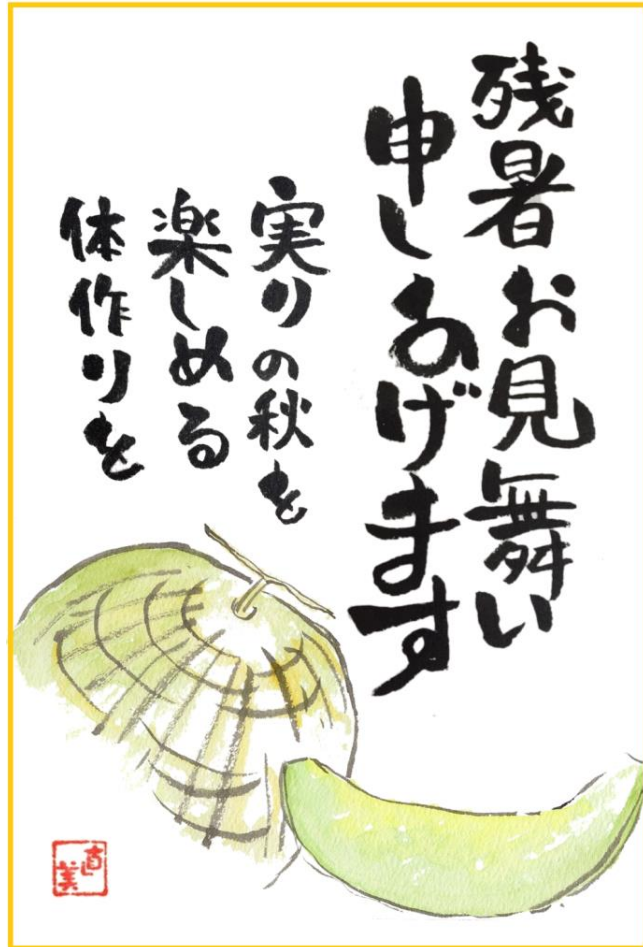 残暑お見舞い
申しあげます
実りの秋を
楽しめる
体作りを
直美